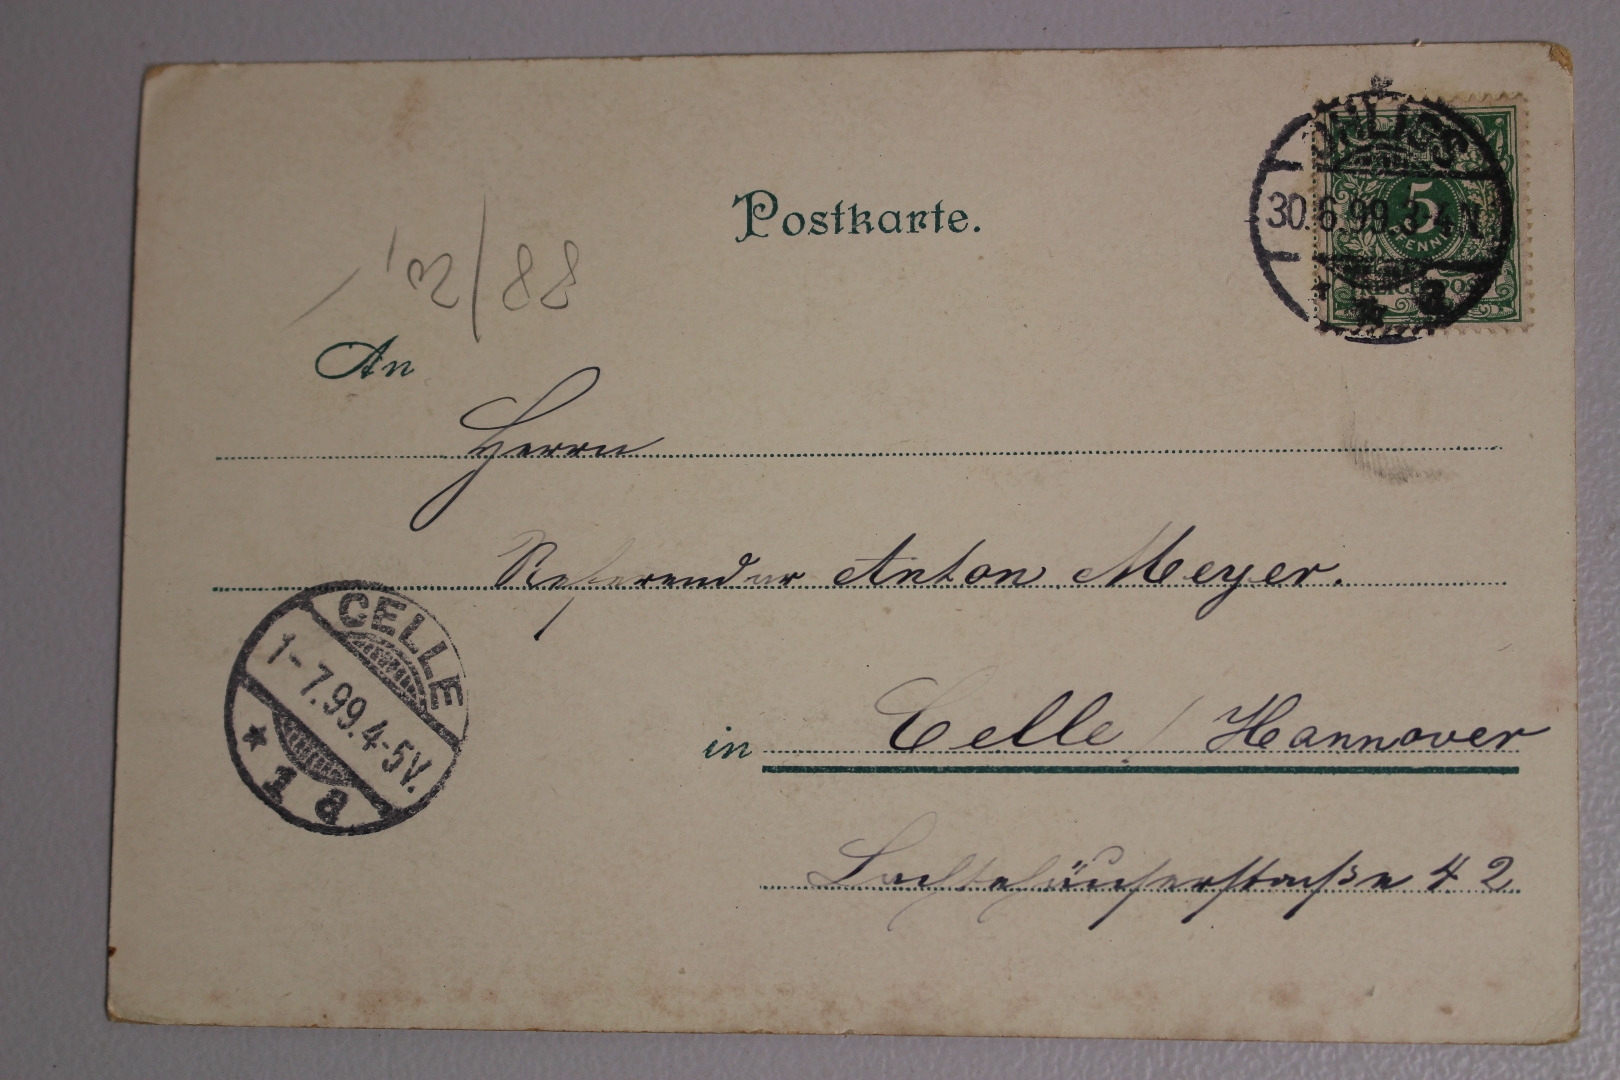 Postkarte.
OHLIGS
30.6.99.3-4N
a
5
PFENNIG
REICHSPOST
12/88
An
Herrn
Referendar Anton Meyer.
CELLE
1-7.99.4-5V.
* 1 a
in Celle / Hannover
Lachtehäuserstraße 42